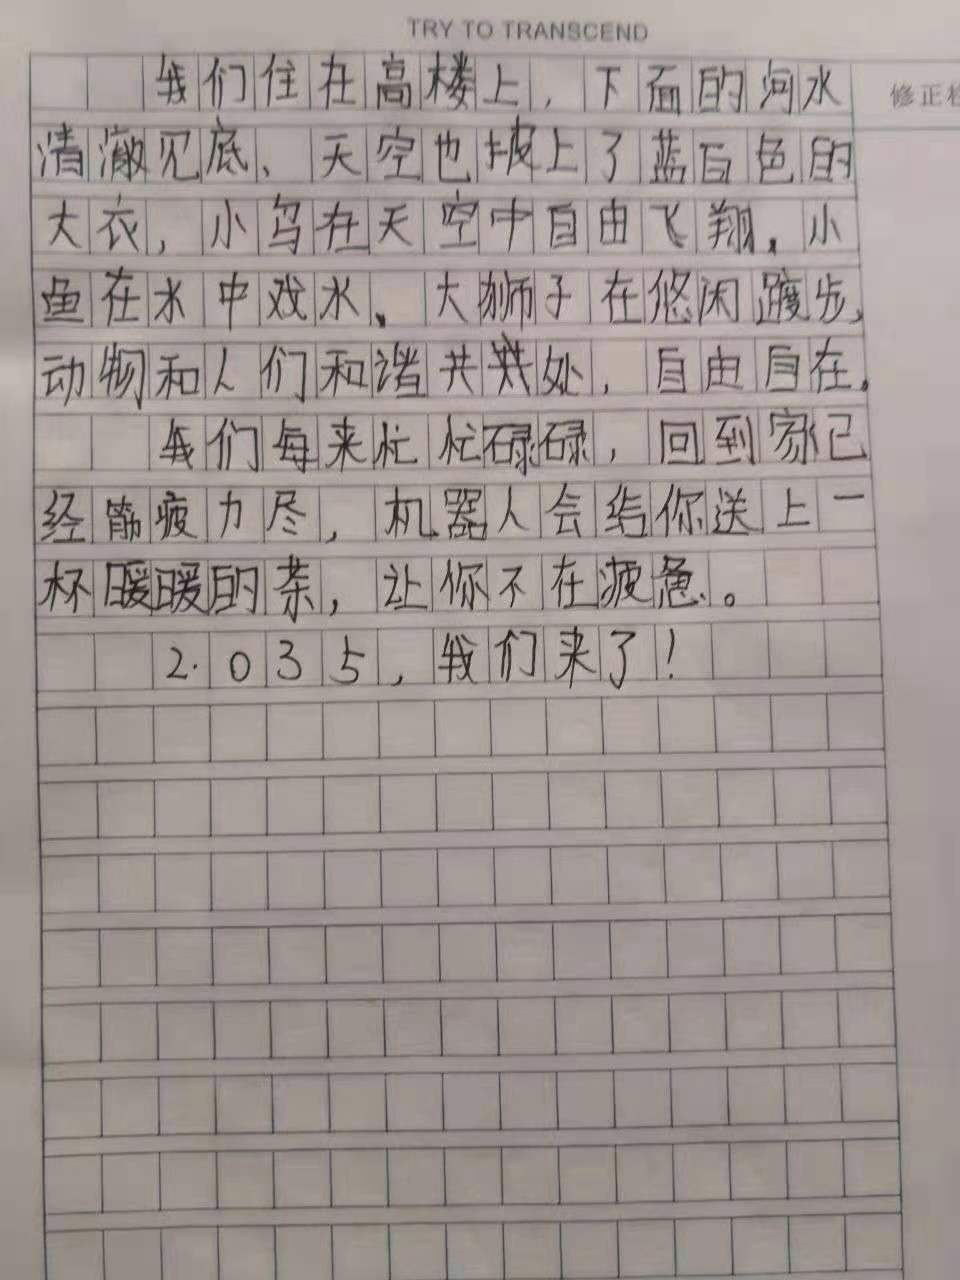 TRY TO TRANSCEND
修正栏
我们住在高楼上，下面的河水
清澈见底、天空也披上了蓝白色的
大衣，小鸟在天空中自由飞翔，小
鱼在水中戏水、大狮子在悠闲踱步，
动物和人们和谐共共处，自由自在。
我们每来忙忙碌碌，回到家已
经筋疲力尽，机器人会给你送上一
杯暖暖的茶，让你不在疲惫。
2.035，我们来了！